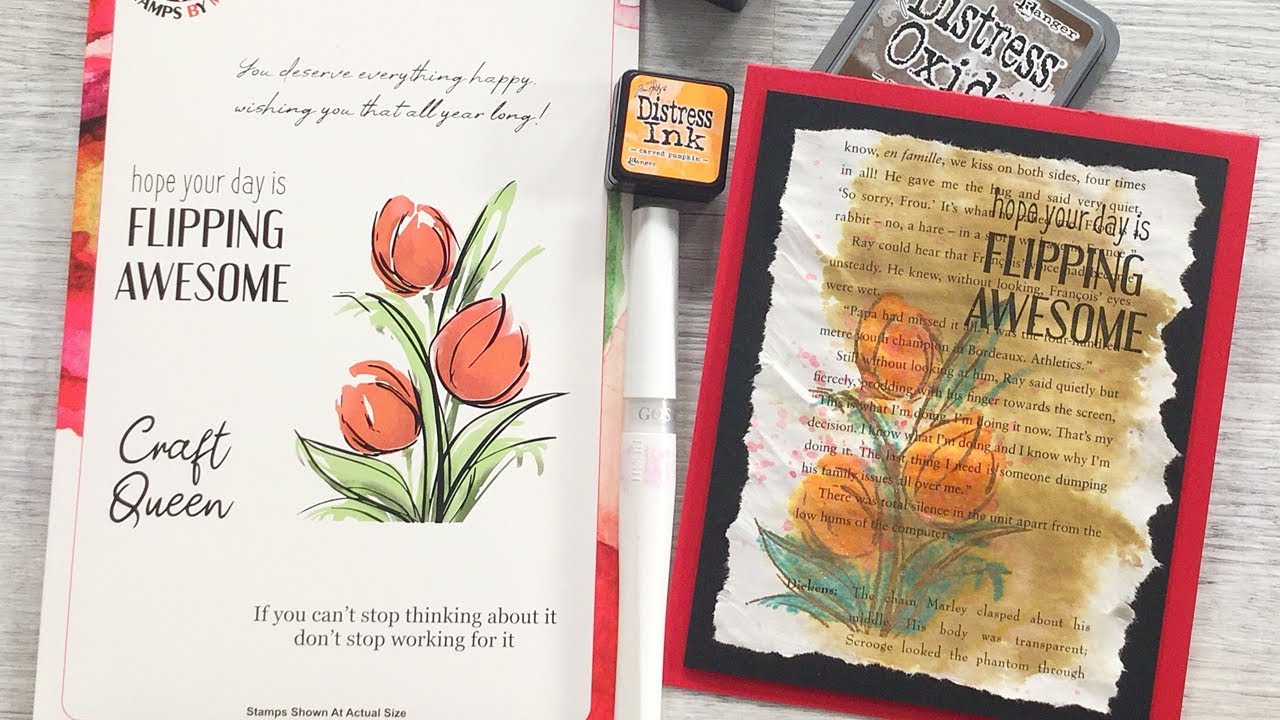 STAMPS BY M
You deserve everything happy.
wishing you that all year long!
hope your day is
FLIPPING
AWESOME
Craft
Queen
If you can't stop thinking about it
don't stop working for it
Stamps Shown At Actual Size
Distress
Ink
carved pumpkin
Ranger
GO S
Ranger
Distress
know, en famille, we kiss on both sides, four times
in all! He gave me the hug and said very quiet,
'So sorry, Frou.' It's what
rabbit – no, a hare – in a
Ray could hear that François'
unsteady. He knew, without looking, François' eyes
were wet.
"Papa had missed it
metre youth champion in Bordeaux. Athletics."
Still without looking at him, Ray said quietly but
fiercely, prodding with his finger towards the screen,
"This is what I'm doing. I'm doing it now. That's my
decision. I know what I'm doing and I know why I'm
doing it. The last thing I need is someone dumping
his family issues all over me."
There was total silence in the unit apart from the
low hums of the computers.
Dickens: The chain Marley clasped about his
middle. His body was transparent;
Scrooge looked the phantom through
hope your day is
FLIPPING
AWESOME